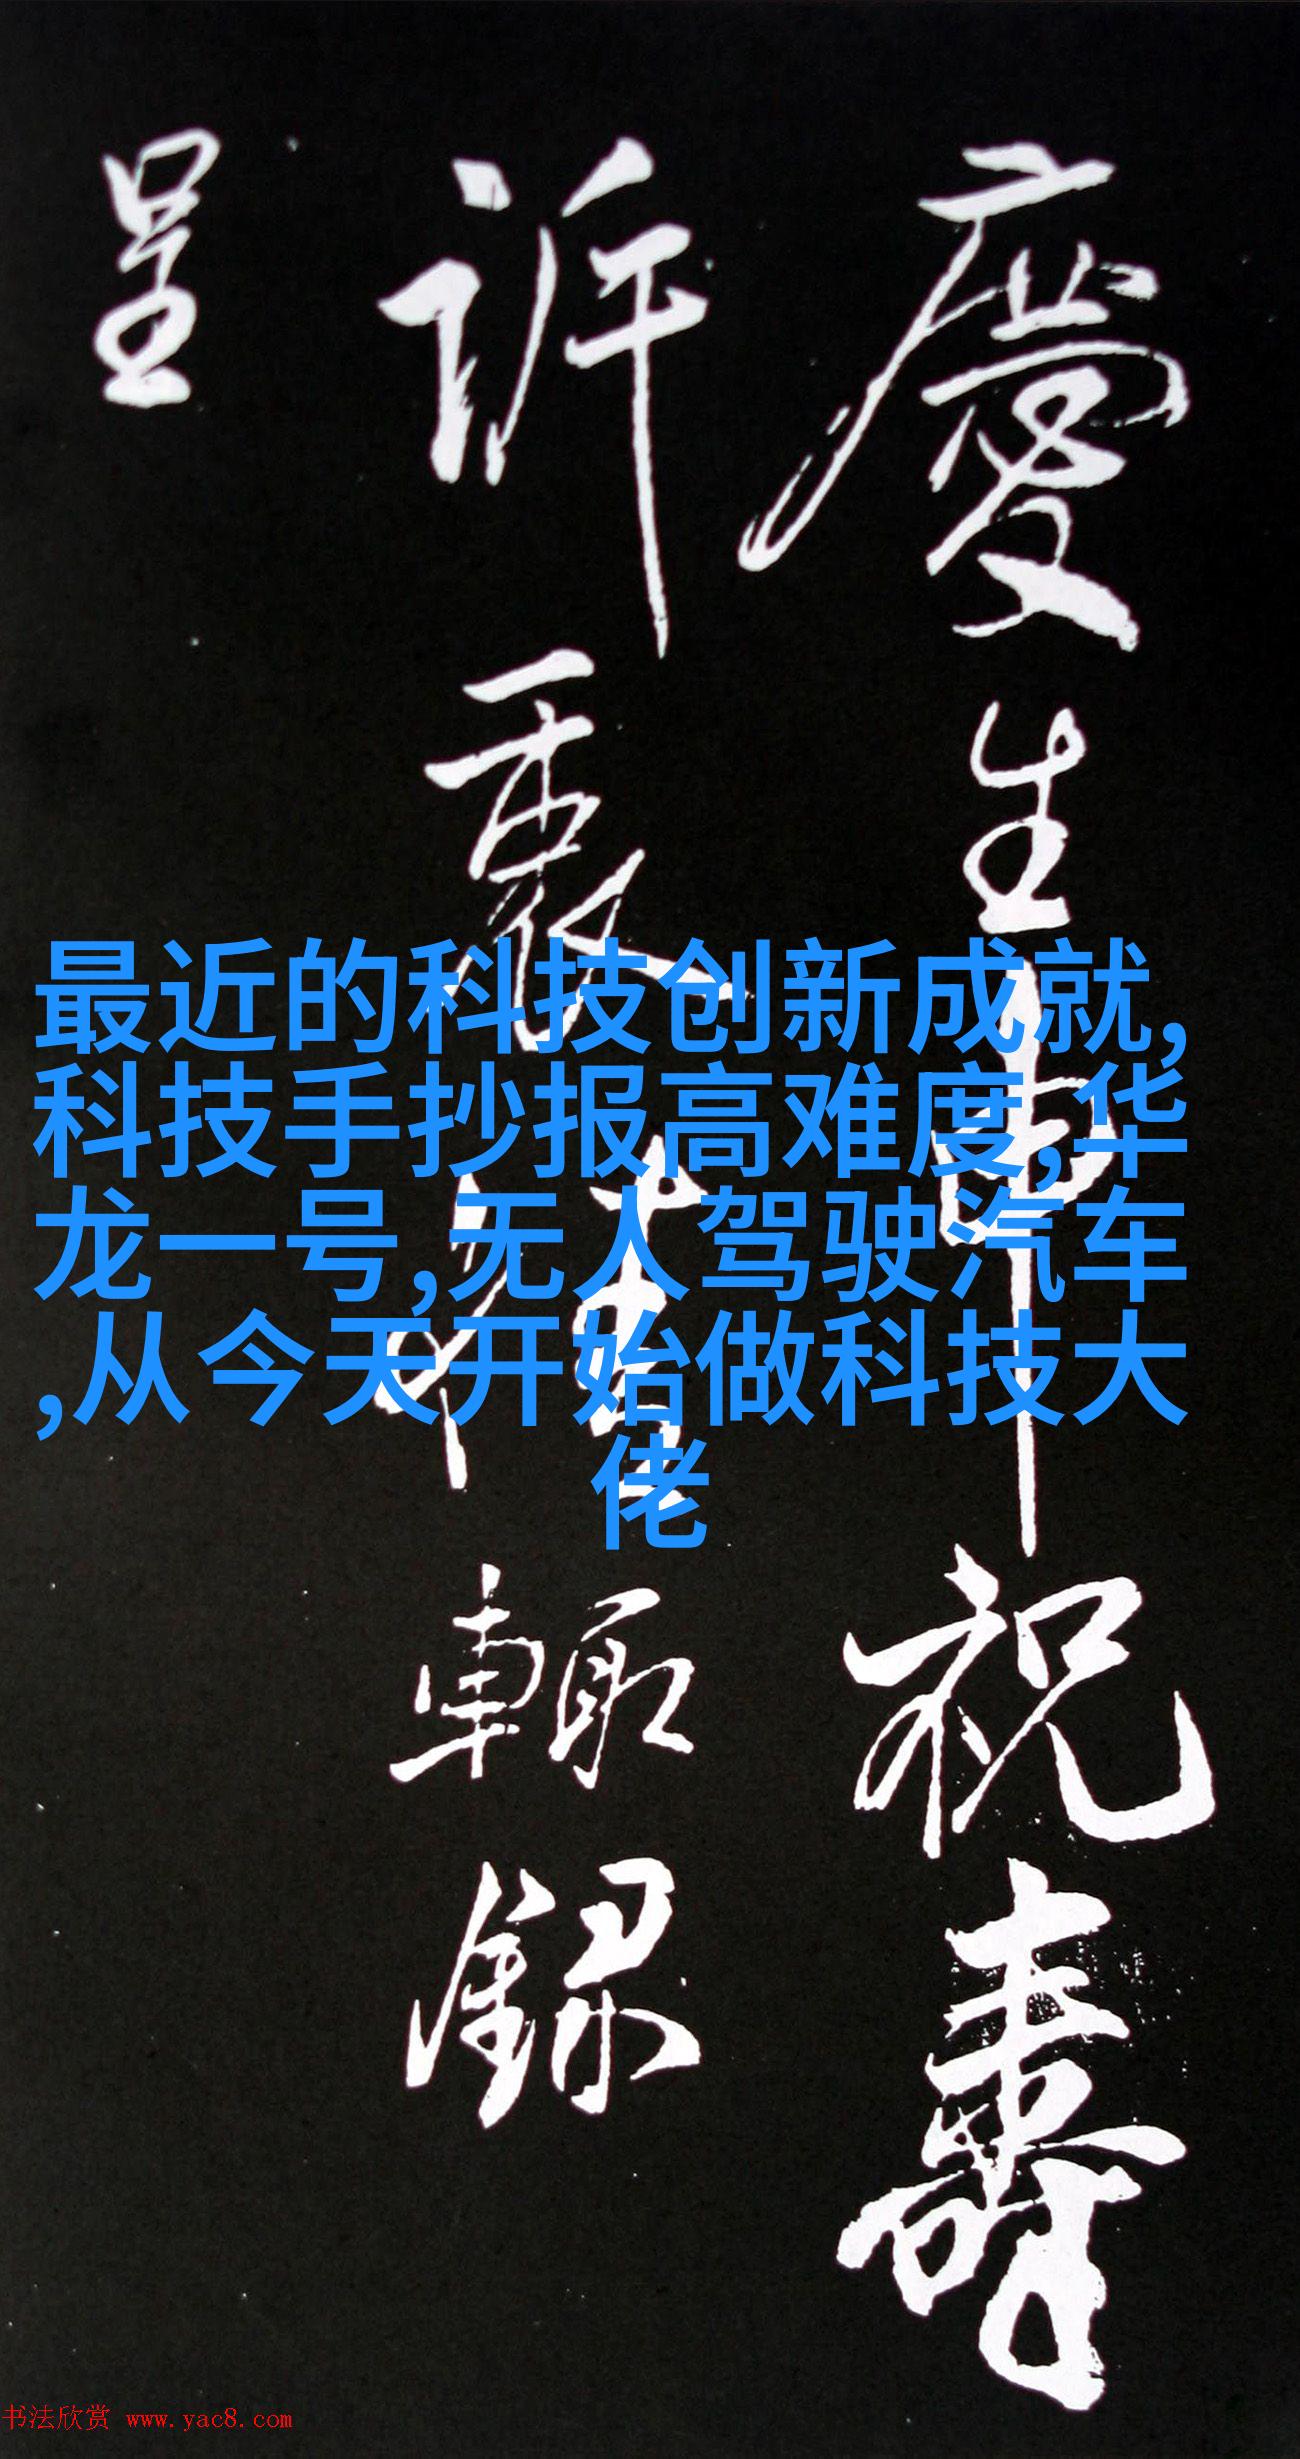 慶生申祝壽
訴衷情輒録
呈
最近的科技创新成就,
科技手抄报高难度,华
龙一号,无人驾驶汽车
,从今天开始做科技大
佬
书法欣赏 www.yac8.com